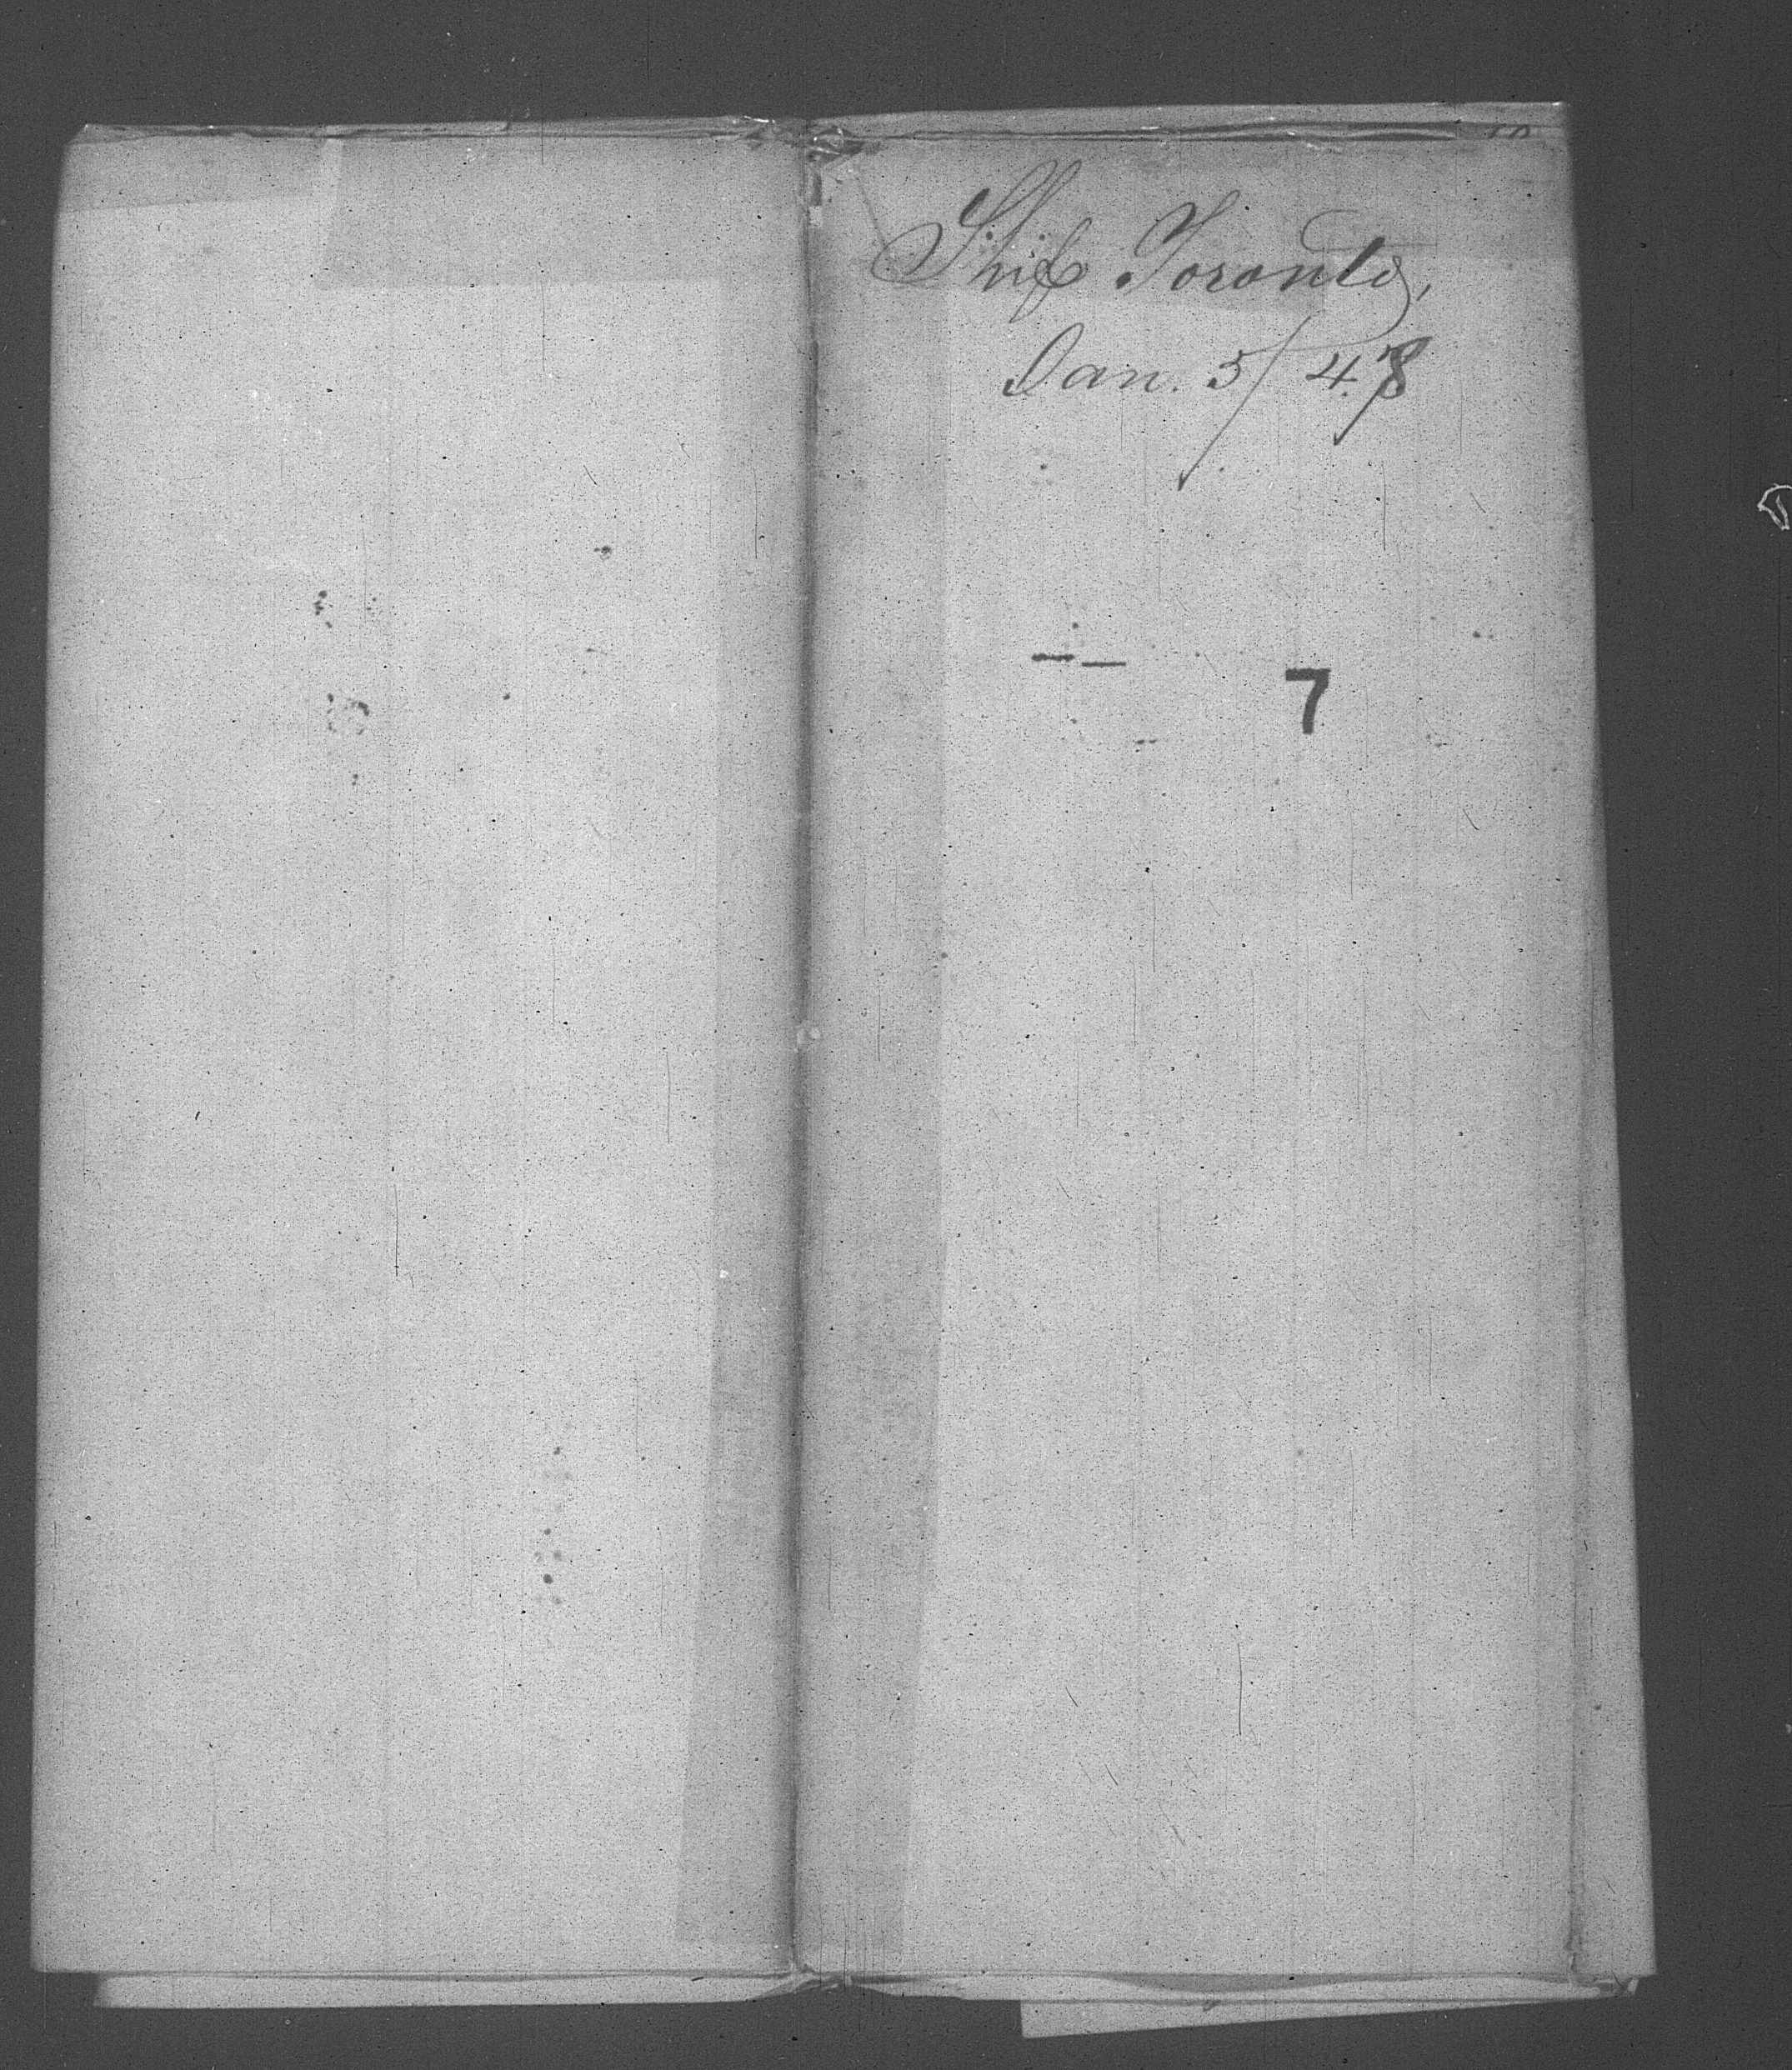 Ship Toronto,
Jan. 5/48
7